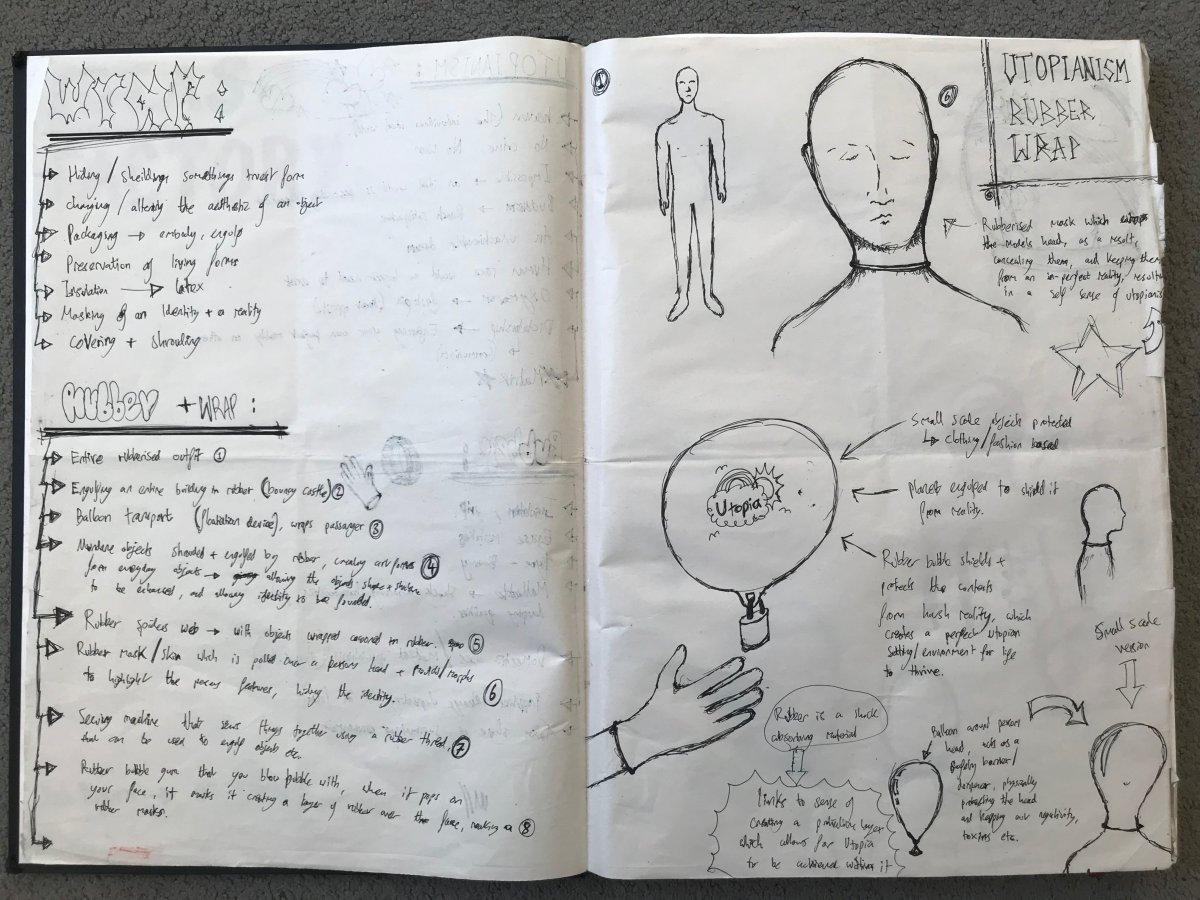 WRAP :
Hiding / sheildings somethings truest form
changing / altering the aesthetic of an object
Packaging → embody, engulf
Preservation of living forms
Insulation → latex
Masking of an Identity + a reality
covering + shrouding
Rubber + WRAP :
Entire rubberised outfit ①
Engulfing an entire building in rubber (bouncy castle) ②
Balloon tansport (floatation device), wraps passanger ③
Mundane objects shrouded + engulfed by rubber, creating art forms ④
form everyday objects → allowing the objects shape + structure
to be enhanced, and allowing identity to be founded.
Rubber spiders web → with objects wrapped covered in rubber ⑤
Rubber mask / skin which is pulled over a persons head + moulds/morphs
to highlight the persons features, hiding the identity. ⑥
Sewing machine that sews things together using a rubber thread, ⑦
that can be used to engulf objects etc.
Rubber bubble gum that you blow bubble with, when it pops on
your face, it masks it creating a layer of rubber over the face, making a ⑧
rubber mask.
①
⑥
UTOPIANISM
RUBBER
WRAP
Rubberised mask which
the models head, as a result,
concealing them, and keeping them
from an im-perfect reality, resulting
in a self sense of utopianism
Small scale objects protected
↳ clothing/fashion based
planets engulfed to shield it
from reality.
Utopia
Rubber bubble shields +
protects the contents
from harsh reality, which
creates a perfect utopian
setting/environment for life
to thrive.
Small scale
version
Rubber is a shock
absorbing material
Links to sense of
creating a protective layer
which allows for Utopia
to be achieved within it
Balloon around person
head, acts as a
barrier/
physically
protecting the head
and keeping out negativity,
toxins etc.